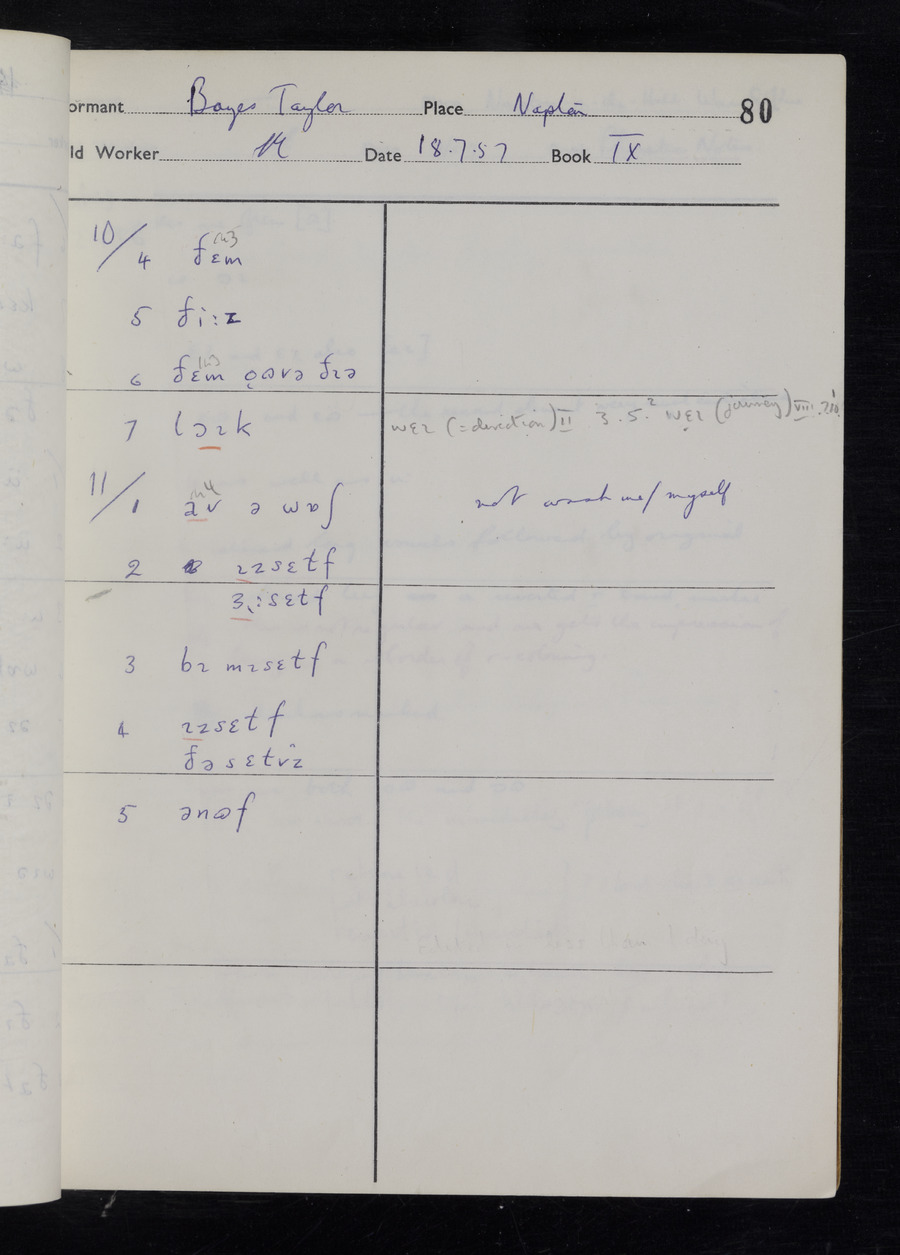 ormant Bayes Taylor Place Napton 80
ld Worker Date 18.7.57 Book IX
10/4 ðɛm
5 ði:z
6 ðɛm ðɪə
7 lɔɪk wɛɪ (=direction) II 3.5.² wɛɪ (journey) VIII
11/1 ə wɒʃ not wash me/myself
2 ɪzsɛtf
ɜ:sɛtf
3 bɪ mɪsɛtf
4 ɪzsɛtf
ðəsɛtvz
5 ənɷf